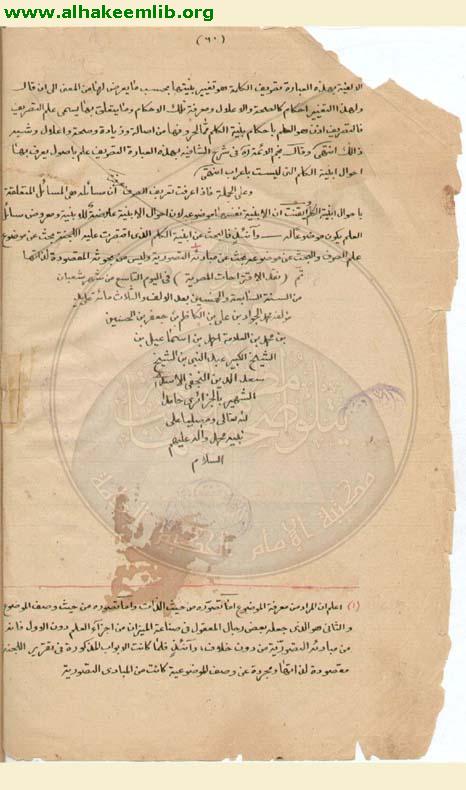 www.alhakeemlib.org
(٦٠)
الالفية بهذه العبارة تصريف الكلمة هو تغيير بنيتها بحسب ما يعرض لها من المعنى الى ان قال
ولهذا التغيير احكام كالصحة والاعلال ومعرفة تلك الاحكام وما يتعلق بها يسمى علم التصريف
فالتصريف اذن هو العلم باحكام بنية الكلم مما لحروفها من اصالة وزيادة وصحة واعلال وشبه
ذلك انتهى وقال نجم الائمة في شرح الشافية بهذه العبارة التصريف علم باصول يعرف بها
احوال ابنية الكلم التي ليست باعراب انتهى
وعلى الجملة فاذا عرفت تعريف الصرف وان مسائله هي المسائل المتعلقة
باحوال ابنية الكلم ايقنت ان الابنية نفسها موضوعه لان احوال الابنية عارضة للابنية ومعروض مسائل
العلم يكون موضوعا له وانئذٍ فالبحث عن ابنية الكلم الذي اقتصرت عليه اللجنة بحث عن موضوع
علم الصرف والبحث عن موضوعه بحث عن مبادئه التصورية وليس من بحوثه المقصودة لذاتها
تم (نقد الاقتراحات المصرية) في اليوم التاسع من شهر شعبان
من السنة السابعة والخمسين بعد الالف والثلاث مائة بقلم
مؤلفه محمد الجواد بن علي بن الكاظم بن جعفر بن الحسين
بن محمد بن العلامة احمد بن اسماعيل بن
الشيخ الكبير عبد النبي بن الشيخ
سعد الدين النجفي الاسدي
الشهير بالجزائري حامدا
لله تعالى ومصليا على
نبيه محمد واله عليهم
السلام
(١) اعلم ان المراد من معرفة الموضوع اما تصوره من حيث الذات واما تصوره من حيث وصف الموضوع
والثاني هو الذي جعله بعض رجال المعقول في صناعة الميزان من اجزاء العلم دون الاول فانه
من مبادئه التصورية من دون خلاف، وانئذٍ فلما كانت الابواب المذكورة في تقرير اللجنة
مقصودة لذاتها ومجردة عن وصف الموضوعية كانت من المبادئ التصورية